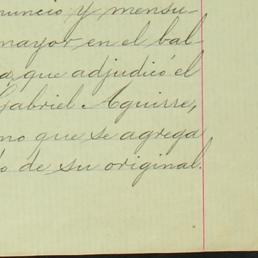 nuncio y mensu-
mayor en el bal-
a que adjudicó el
Gabriel Aguirre,
no que se agrega
o de su original.